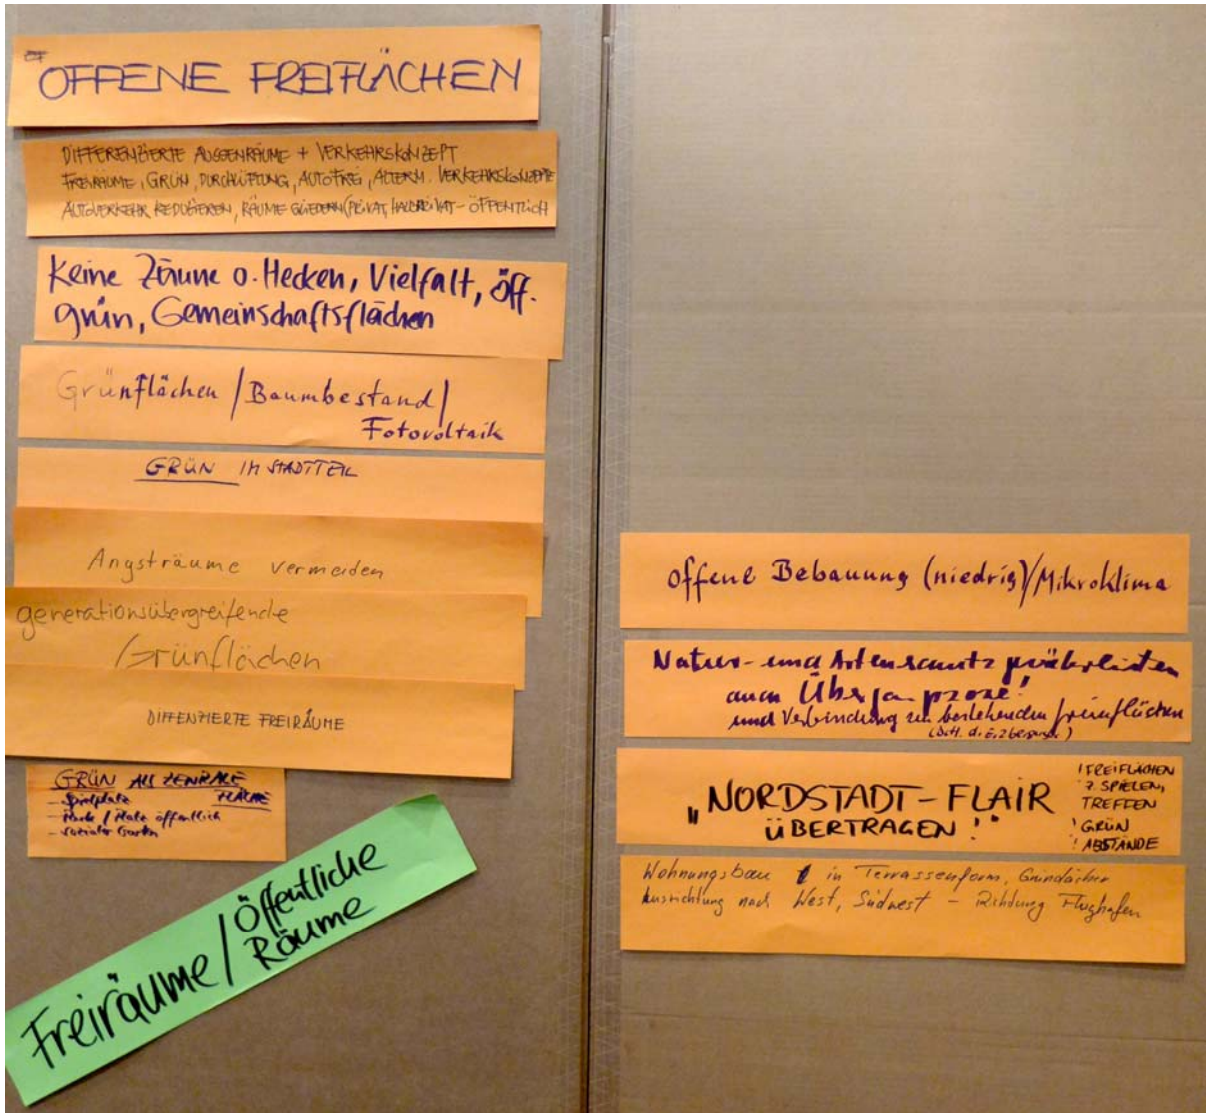 OFFENE FREIFLÄCHEN
DIFFERENZIERTE AUSSENRÄUME + VERKEHRSKONZEPT
FREIRÄUME, GRÜN, DURCHLÜFTUNG, AUTOFREI, ALTERN. VERKEHRSKONZEPTE
AUTOVERKEHR REDUZIEREN, RÄUME GLIEDERN (PRIVAT, HALBPRIVAT - ÖFFENTLICH
Keine Zäune o. Hecken, Vielfalt, öff.
grün, Gemeinschaftsflächen
Grünflächen / Baumbestand /
Fotovoltaik
GRÜN IM STADTTEIL
Angsträume vermeiden
generationsübergreifende
Grünflächen
DIFFENZIERTE FREIRÄUME
GRÜN ALS ZENTRALE
FLÄCHE
- Spielplatz
- Park / Platz öffentlich
- sozialer Garten
Freiräume / Öffentliche
Räume
Offene Bebauung (niedrig) / Mikroklima
Natur- und Artenschutz
und Verbindung zu bestehenden freiflächen
"NORDSTADT - FLAIR
ÜBERTRAGEN!"
! FREIFLÄCHEN
Z. SPIELEN,
TREFFEN
! GRÜN
! ABSTÄNDE
Wohnungsbau in Terrassenform, Gründächer
Ausrichtung nach West, Südwest - Richtung Flughafen